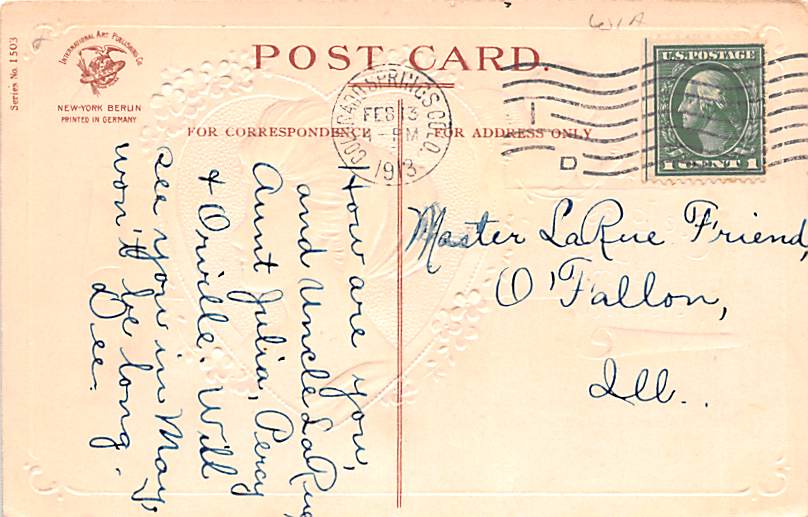 Series No. 1503
INTERNATIONAL ART PUBLISHING Co
NEW-YORK BERLIN
PRINTED IN GERMANY
POST CARD.
FOR CORRESPONDENCE
FOR ADDRESS ONLY
COLORADO SPRINGS COLO.
FEB 13
- PM
1913
D
U.S. POSTAGE
1 CENT 1
How are you,
and Uncle LaRue,
Aunt Julia, Percy
& Orville. Will
see you in May,
won't be long.
Dee.
Master LaRue Friend,
O'Fallon,
Ill..